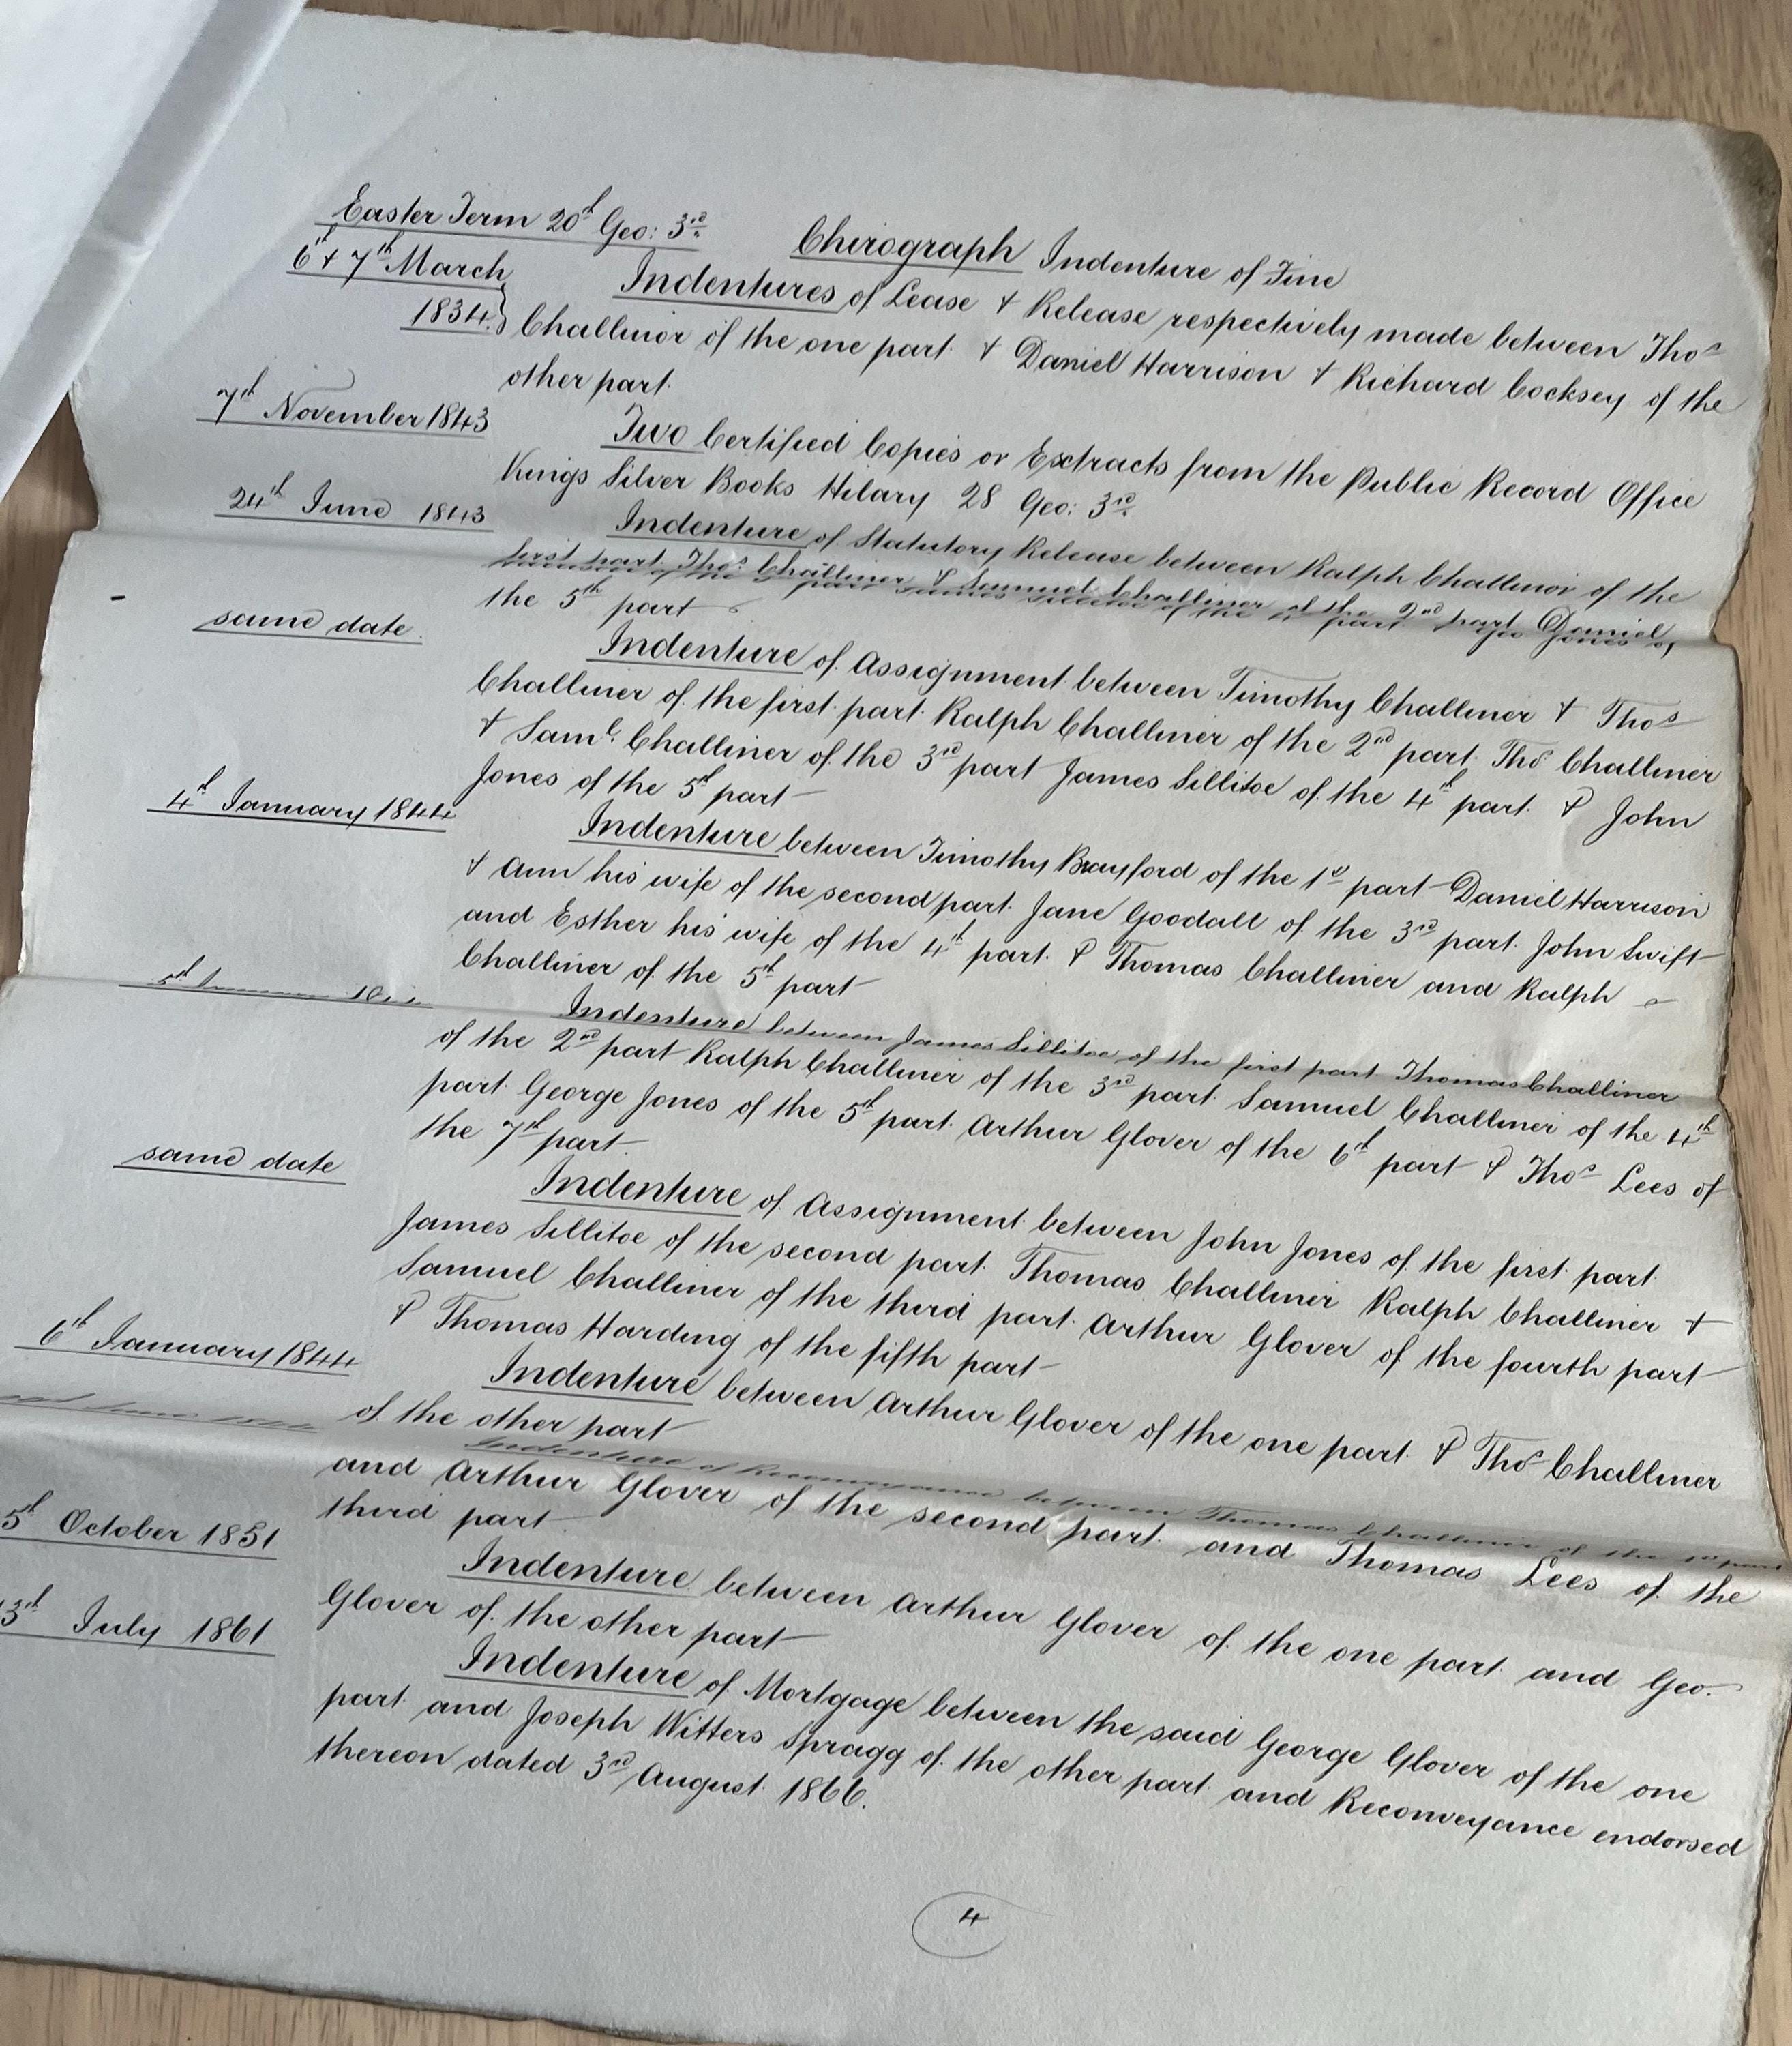 Easter Term 20th Geo: 3rd. Chirograph Indenture of Fine
6th & 7th March Indentures of Lease & Release respectively made between Thos
1834. } Challinor of the one part & Daniel Harrison & Richard Cocksey of the
other part.
7th November 1843 Two Certified Copies or Extracts from the Public Record Office
Kings Silver Books Hilary 28 Geo: 3rd.
24th June 1843 Indenture of Statutory Release between Ralph Challinor of the
first part Thos. Challiner & Samuel Challiner of the 2nd part Daniel
the 5th part
same date. Indenture of Assignment between Timothy Challiner & Thos
Challiner of the first part Ralph Challiner of the 2nd part Thos Challiner
& Saml. Challiner of the 3rd part James Sillitoe of the 4th part & John
Jones of the 5th part
4th January 1844 Indenture between Timothy Brayford of the 1st part Daniel Harrison
& Ann his wife of the second part Jane Goodall of the 3rd part John Swift
and Esther his wife of the 4th part & Thomas Challiner and Ralph
Challiner of the 5th part
5th Indenture between James Sillitoe of the first part Thomas Challiner
of the 2nd part Ralph Challiner of the 3rd part Samuel Challiner of the 4th
part George Jones of the 5th part Arthur Glover of the 6th part & Thos Lees of
the 7th part.
same date Indenture of Assignment between John Jones of the first part
James Sillitoe of the second part Thomas Challiner Ralph Challiner &
Samuel Challiner of the third part Arthur Glover of the fourth part
& Thomas Harding of the fifth part
6th January 1844 Indenture between Arthur Glover of the one part & Thos Challiner
of the other part
June Indenture of Reconveyance between Thomas Challiner of the 1st part
and Arthur Glover of the second part and Thomas Lees of the
third part
5th October 1851 Indenture between Arthur Glover of the one part and Geo.
Glover of the other part
3th July 1861 Indenture of Mortgage between the said George Glover of the one
part and Joseph Witters Spragg of the other part and Reconveyance endorsed
thereon dated 3rd August 1866.
4